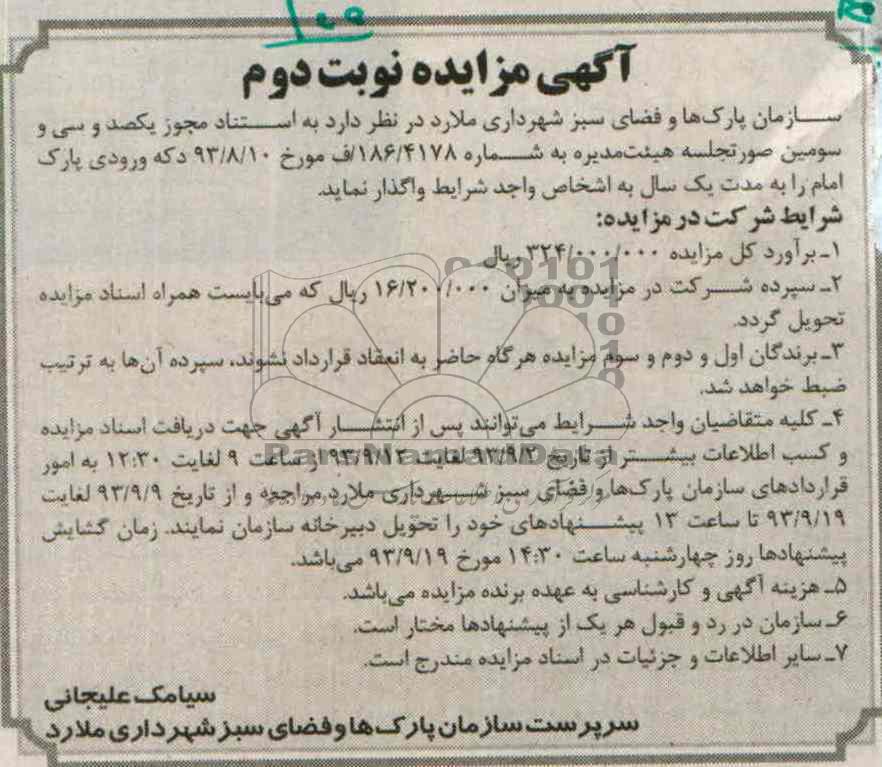 آگهی مزایده نوبت دوم
سازمان پارک‌ها و فضای سبز شهرداری ملارد در نظر دارد به استناد مجوز یکصد و سی و
سومین صورتجلسه هیئت‌مدیره به شماره ۱۸۶/۴۱۷۸/ف مورخ ۹۳/۸/۱۰ دکه ورودی پارک
امام را به مدت یک سال به اشخاص واجد شرایط واگذار نماید.
شرایط شرکت در مزایده:
۱ـ برآورد کل مزایده ۳۲۴/۰۰۰/۰۰۰ ریال
۲ـ سپرده شرکت در مزایده به میزان ۱۶/۲۰۰/۰۰۰ ریال که می‌بایست همراه اسناد مزایده
تحویل گردد.
۳ـ برندگان اول و دوم و سوم مزایده هرگاه حاضر به انعقاد قرارداد نشوند، سپرده آن‌ها به ترتیب
ضبط خواهد شد.
۴ـ کلیه متقاضیان واجد شرایط می‌توانند پس از انتشار آگهی جهت دریافت اسناد مزایده
و کسب اطلاعات بیشتر از تاریخ ۹۳/۹/۲ لغایت ۹۳/۹/۱۳ از ساعت ۹ لغایت ۱۲:۳۰ به امور
قراردادهای سازمان پارک‌ها و فضای سبز شهرداری ملارد مراجعه و از تاریخ ۹۳/۹/۹ لغایت
۹۳/۹/۱۹ تا ساعت ۱۳ پیشنهادهای خود را تحویل دبیرخانه سازمان نمایند. زمان گشایش
پیشنهادها روز چهارشنبه ساعت ۱۴:۳۰ مورخ ۹۳/۹/۱۹ می‌باشد.
۵ـ هزینه آگهی و کارشناسی به عهده برنده مزایده می‌باشد.
۶ـ سازمان در رد و قبول هر یک از پیشنهادها مختار است.
۷ـ سایر اطلاعات و جزئیات در اسناد مزایده مندرج است.
سیامک علیجانی
سرپرست سازمان پارک‌ها و فضای سبز شهرداری ملارد